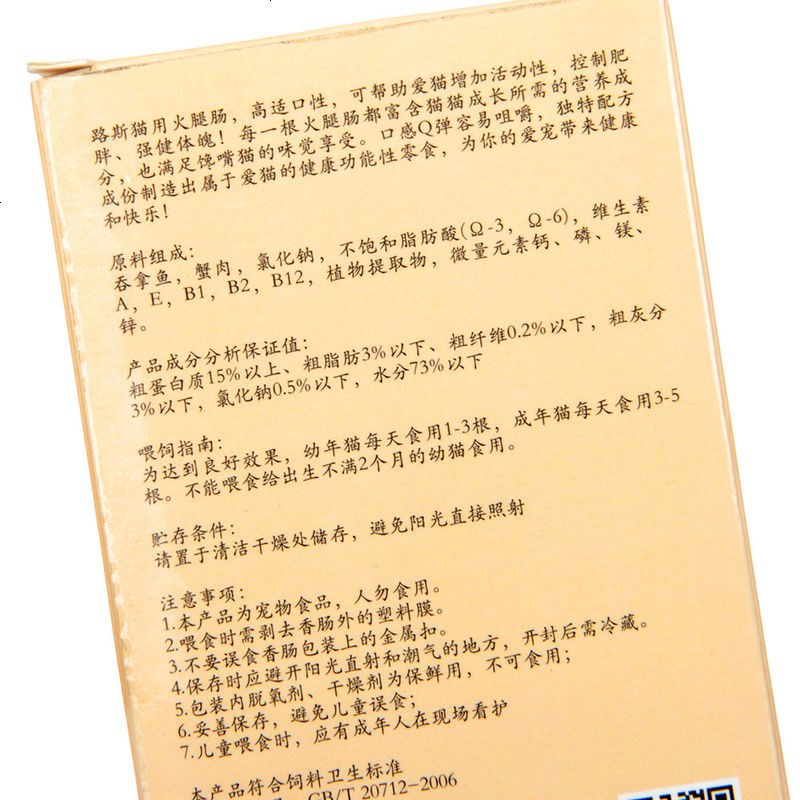 路斯猫用火腿肠，高适口性，可帮助爱猫增加活动性，控制肥
胖、强健体魄！每一根火腿肠都富含猫猫成长所需的营养成
分，也满足馋嘴猫的味觉享受。口感Q弹容易咀嚼，独特配方
成份制造出属于爱猫的健康功能性零食，为你的爱宠带来健康
和快乐！
原料组成：
吞拿鱼，蟹肉，氯化钠，不饱和脂肪酸(Ω-3，Ω-6)，维生素
A，E，B1，B2，B12，植物提取物，微量元素钙、磷、镁、
锌。
产品成分分析保证值：
粗蛋白质15%以上、粗脂肪3%以下、粗纤维0.2%以下，粗灰分
3%以下，氯化钠0.5%以下，水分73%以下
喂饲指南：
为达到良好效果，幼年猫每天食用1-3根，成年猫每天食用3-5
根。不能喂食给出生不满2个月的幼猫食用。
贮存条件：
请置于清洁干燥处储存，避免阳光直接照射
注意事项：
1.本产品为宠物食品，人勿食用。
2.喂食时需剥去香肠外的塑料膜。
3.不要误食香肠包装上的金属扣。
4.保存时应避开阳光直射和潮气的地方，开封后需冷藏。
5.包装内脱氧剂、干燥剂为保鲜用，不可食用；
6.妥善保存，避免儿童误食；
7.儿童喂食时，应有成年人在现场看护
本产品符合饲料卫生标准
GB/T 20712-2006